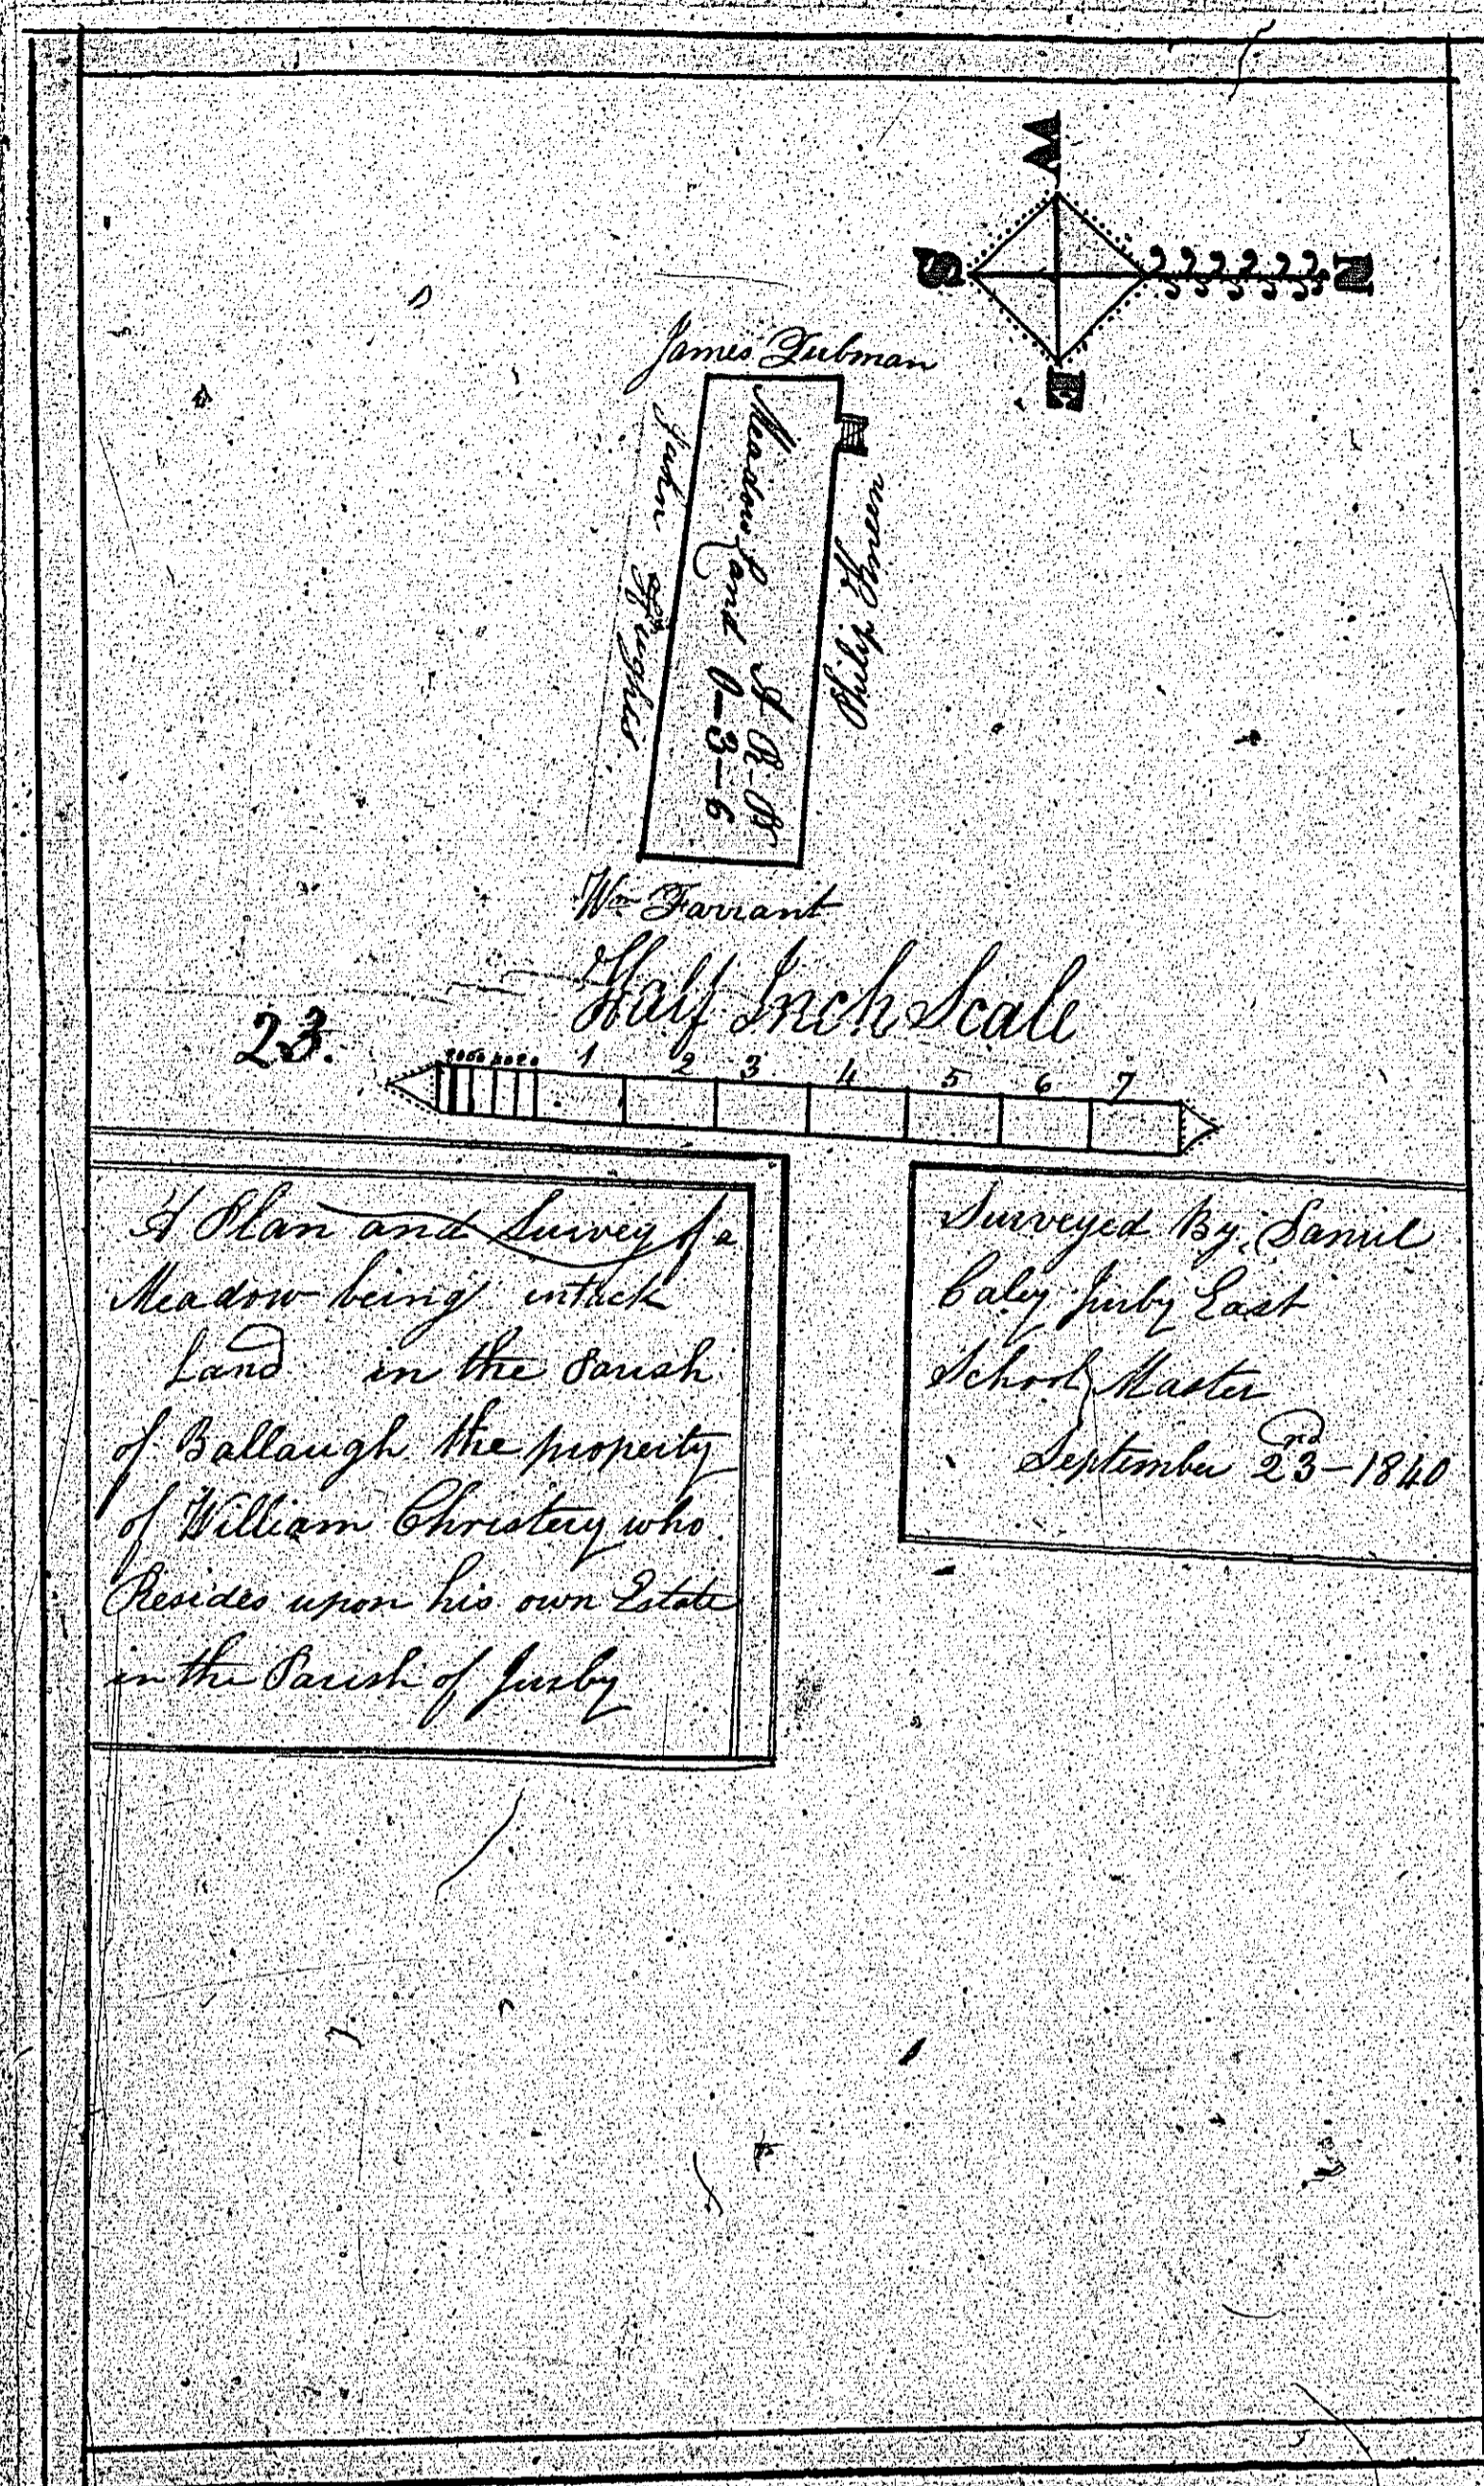 W
S
N
E
James Tubman
Meadow Land A R P
0-3-6
John Hughes
Philip Kneen
Wm Farrant
Half Inch Scale
23.
80 60 40 20 1 2 3 4 5 6 7
A Plan and Survey of a
Meadow being intack
Land in the Parish
of Ballaugh the property
of William Christery who
Resides upon his own Estate
in the Parish of Jurby
Surveyed By Samul
Caley Jurby East
School Master
September 23rd - 1840